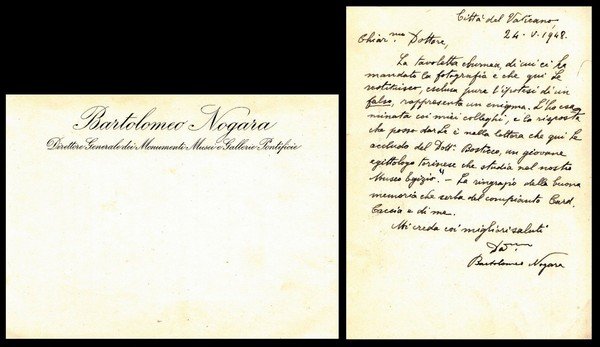 Bartolomeo Nogara
Direttore Generale dei Monumenti Musei e Gallerie Pontificie
Città del Vaticano,
24-V-1948.
Chiar.mo Dottore,
La tavoletta eburnea, di cui ci ha
mandato la fotografia e che qui Le
restituisco, esclusa pure l'ipotesi di un
falso, rappresenta un enigma. L'ho esa-
minata coi miei colleghi, e la risposta
che posso darLe è nella lettera che qui Le
accludo del Dott. Bosticco, un giovane
egittologo torinese che studia nel nostro
Museo Egizio. - La ringrazio della buona
memoria che serba del compianto Card.
Caccia e di me.
Mi creda coi migliori saluti
Bartolomeo Nogara